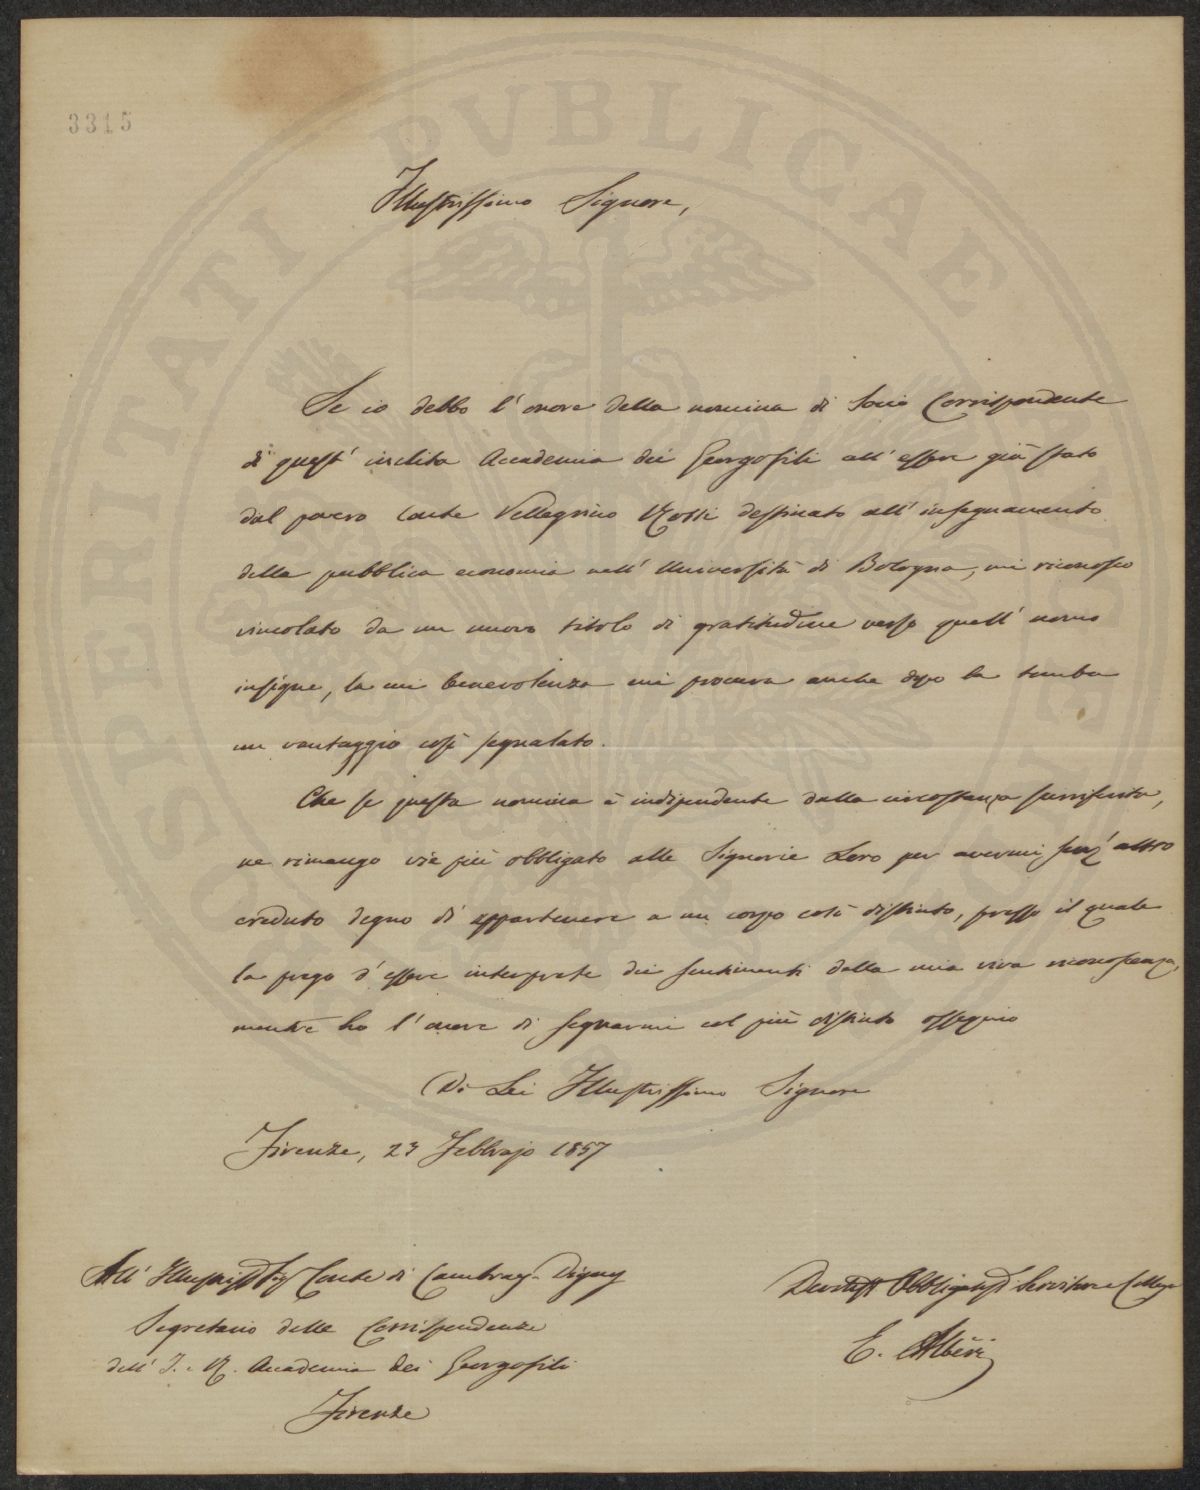 3315
PROSPERITATI PVBLICAE AVGENDAE
Illustrissimo Signore,
Se io debbo l'onore della nomina di Socio Corrispondente
di quest' inclita Accademia dei Georgofili all' essere già stato
dal povero Conte Pellegrino Rossi destinato all' insegnamento
della pubblica economia nell' Università di Bologna, mi riconosco
vincolato da un nuovo titolo di gratitudine verso quell' uomo
insigne, la cui benevolenza mi procura anche dopo la tomba
un vantaggio così segnalato.
Che se questa nomina è indipendente dalla circostanza surriferita,
ne rimango vie più obbligato alle Signorie Loro per avermi senz' altro
creduto degno di appartenere a un corpo così distinto, presso il quale
la prego d' essere interprete dei sentimenti della mia viva riconoscenza,
mentre ho l' onore di segnarmi col più distinto ossequio
Di Lei Illustrissimo Signore
Firenze, 23 Febbrajo 1857
All' Illustriss Sig Conte di Cambray-Digny
Segretario delle Corrispondenze
dell' I. e R. Accademia dei Georgofili
Firenze
Devotiss Obbligatiss Servitore e Collega
E. Albèri